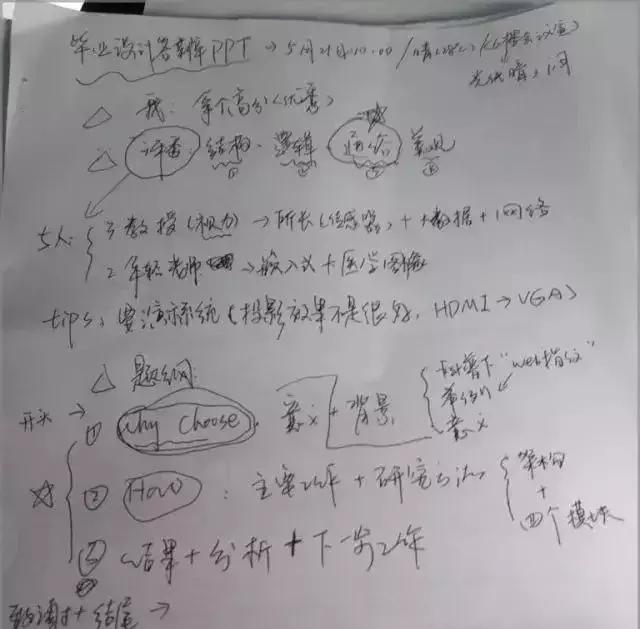 毕业设计答辩PPT → 5月21日10:00 /晴(28℃) /(6楼会议室)
光线暗,1间
△ 我: 拿个高分(优秀)
△ 评委: 结构、逻辑 ☆ 美观
① ② ③
5人: 3教授(权力) → 所长(传感器) + 大数据 + 网络
2年轻老师 → 嵌入式 + 医学图像
tips: 要演示系统 (投影效果不是很好, HDMI → VGA)
△ 提纲:
开头 →
① Why choose, 意义 + 背景, "web指纹" 意义
☆
② How : 主要工作 + 研究方法 架构 + 四个模块
③ 结果 + 分析 + 下一步工作
致谢 + 结尾 →